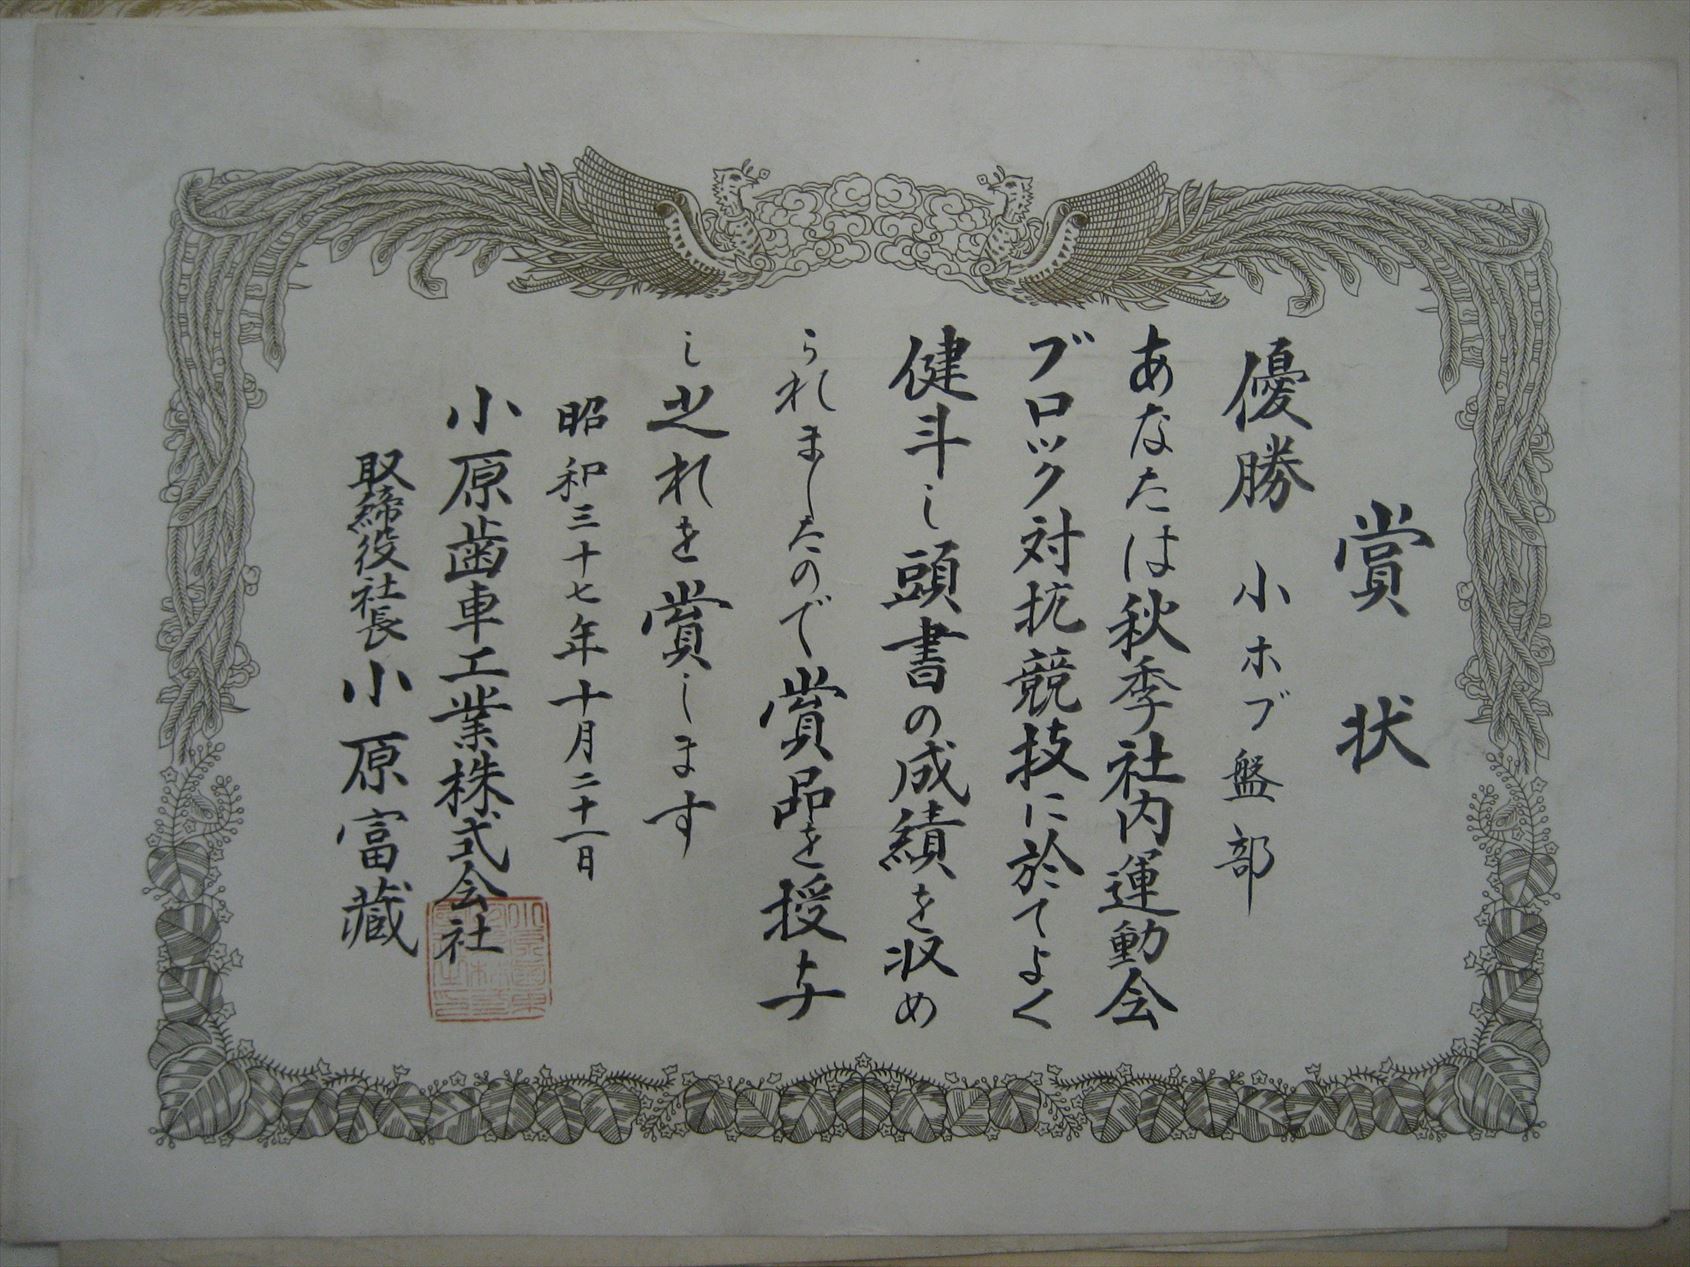 賞状
優勝 小ホブ盤部
あなたは秋季社内運動会
ブロック対抗競技に於てよく
健斗し頭書の成績を収め
られましたので賞品を授与
し之れを賞します
昭和三十七年十月二十一日
小原歯車工業株式会社
取締役社長 小原富蔵